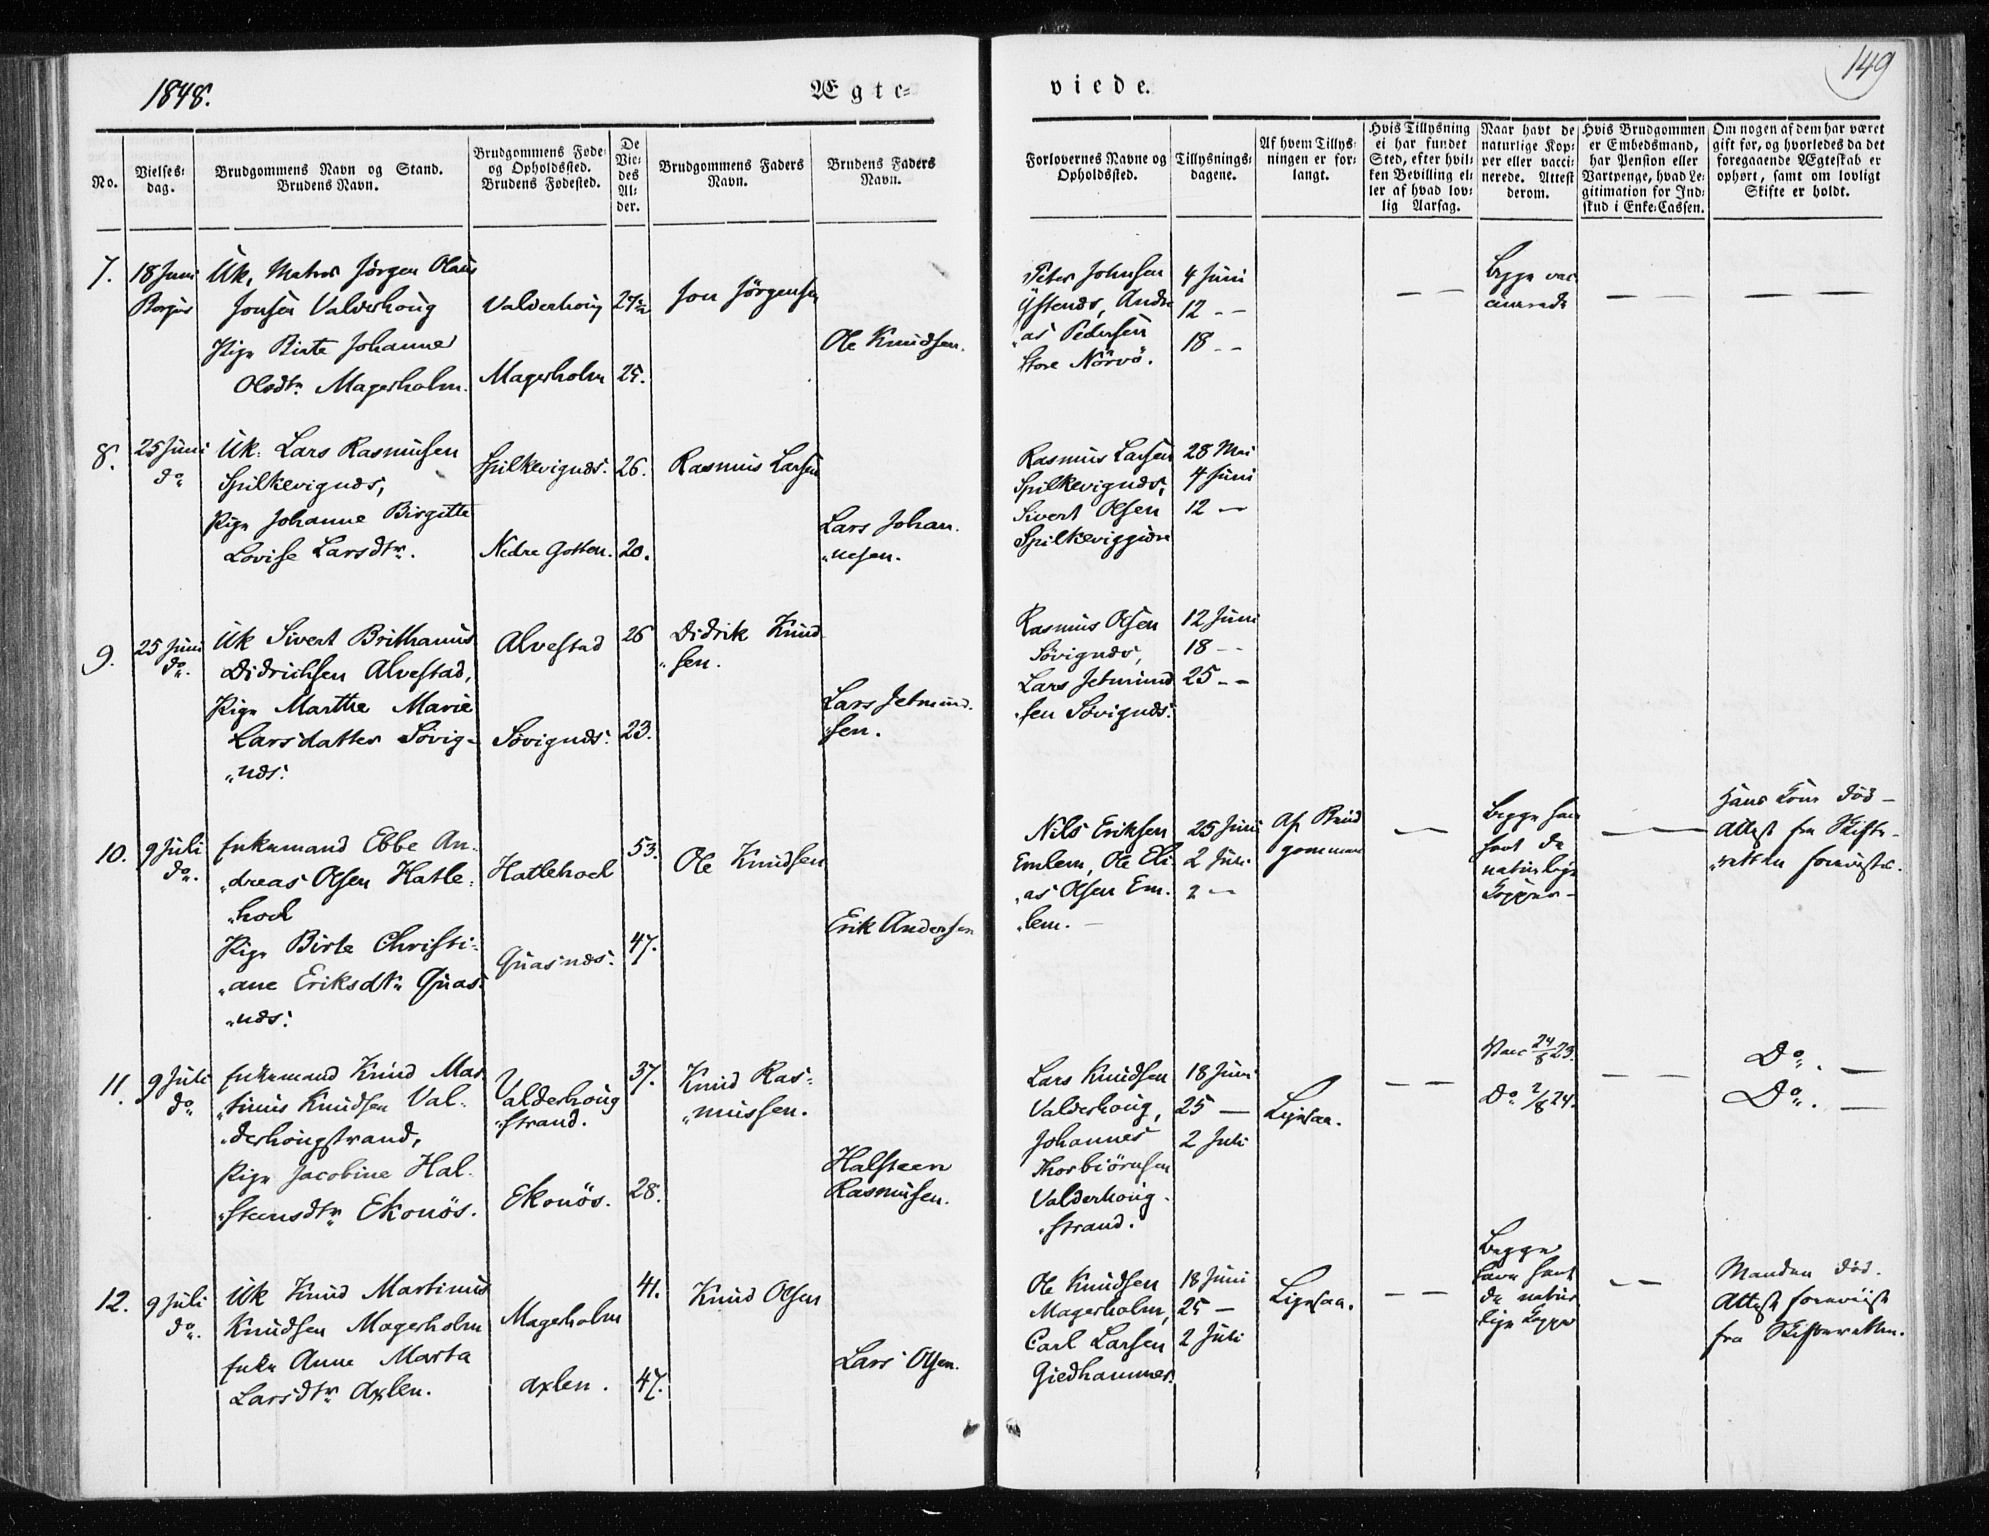 1848.
Ægte=
viede.
149
No.
Vielses=
dag.
Brudgommens Navn og Stand.
Brudens Navn.
Brudgommens Føde=
og Opholdssted.
Brudens Fødested.
De
Vie=
des
Al=
der.
Brudgommens Faders
Navn.
Brudens Faders
Navn.
Forlovernes Navne og
Opholdssted.
Tillysnings=
dagene.
Af hvem Tillys=
ningen er for=
langt.
Hvis Tillysning
ei har fundet
Sted, efter hvil=
ken Bevilling el=
ler af hvad lov=
lig Aarsag.
Naar havt de
naturlige Kop=
per eller vacci=
nerede. Attest
derom.
Hvis Brudgommen
er Embedsmand,
har Pension eller
Vartpenge, hvad Le=
gitimation for Ind=
skud i Enke=Cassen.
Om nogen af dem har været
gift før, og hvorledes da det
foregaaende Ægteskab er
ophørt, samt om lovligt
Skifte er holdt.
7.
18 Juni
Borgus
Uk, Matros Jørgen Olaus
Jonsen Valderhoug
Pige Birte Johanne
Olsdtr Magerholm.
Valderhoug
Magerholm
25.
Jon Jørgensen
Ole Knudsen.
Peter Johnsen
Ystenæs, Andre
"as Pedersen
Store Nörvö.
4 Juni
12 --
18 --
Begge vac
cinerede
8.
25 Juni
do
Uk. Lars Rasmusen
Spilkevignæs,
Pige Johanne Birgitte
Lovise Larsdtr.
Spilkevignæs.
Nedre Gotten.
26.
20.
Rasmus Larsen
Lars Johan.
"nesen.
Rasmus Larsen
Spilkevignæs,
Sivert Olsen
Spilkeviggjære
28 Mai
4 Juni
12 —
9.
25 Juni
do.
Uk Sivert Brithanus
Didrichsen Alvestad,
Pige Marthe Marie
Larsdatter Sövig-
"næs:
Alvestad
Sövignæs:
26
23.
Didrik Knud
"sen.
Lars Jetmund.
"sen.
Rasmus Olsen
Sövignæs,
Lars Jetmund
"sen Sövignæs:
12 Juni
18 --
25 --
10.
9 Juli
do.
Enkemand Ebbe An.
"dreas Olsen Hatle=
"hoel
Pige Birte Christi=
"ane Eriksdtr Quas=
"næs:
Hatlehoel
Quasnæs:
53.
47.
Ole Knudsen
Erik Andersen
Nils Eriksen
Emlem, Ole Eli
"as Olsen Em.
"lem. —
25 Juni
2 Juli
2 —
Af Brud
gommen
—
Begge have
havt de
naturlige
Kopper —
Hans Kone død —
Attest fra Skifte-
"retten forevist.
11.
9 Juli
do
Enkemand Knud Mar
"tinus Knudsen Val=
"derhougstrand,
Pige Jacobine Hal.
"steensdtr Ekonös.
Valderhoug
"strand.
Ekonös.
37.
28.
Knud Ras=
"mussen.
Halsteen
Rasmusen.
Lars Knudsen
Valderhoug,
Johannes
Thorbiörnsen
Valderhoug.
"strand.
18 Juni
25 —
2 Juli
Ligesaa.
Vacc 24/8 23.
Do 2/8 24.
Do. —
Do. —
12.
9 Juli
do.
Uk Knud Martinus
Knudsen Magerholm
Enke Anne Marta
Larsdtr Axlen.
Magerholm
Axlen.
41.
47.
Knud Olsen
Lars Olsen.
Ole Knudsen
Magerholm,
Carl Larsen
Giedhammer.
18 Juni
25 —
2 Juli
Ligesaa.
Begge
have havt
de natur
lige Kopper
Manden død.
Attest foreviist
fra Skifteretten.